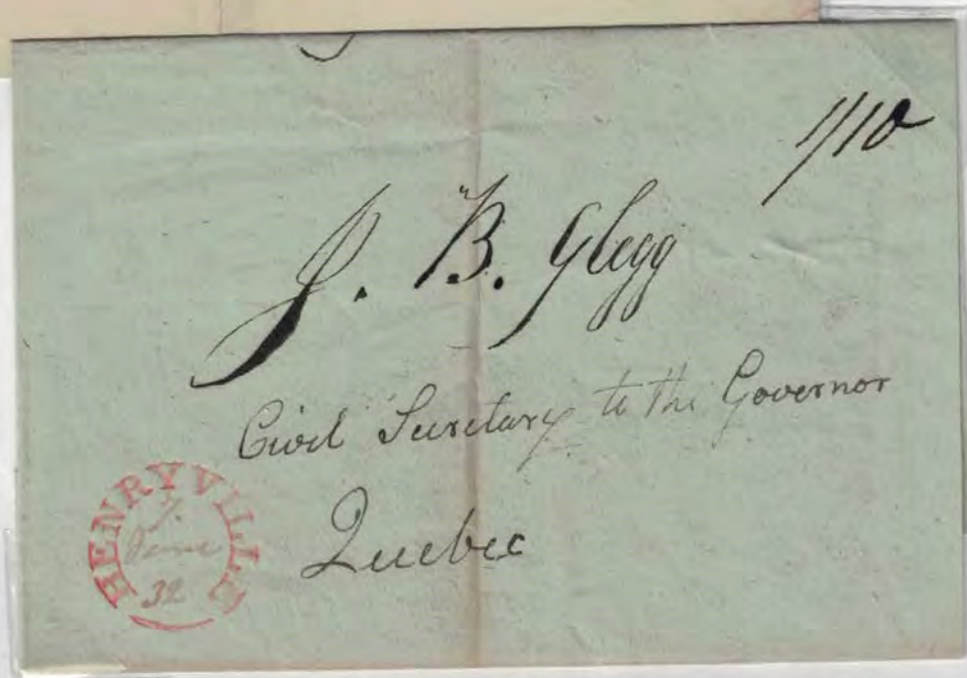 1/10
J. B. Glegg
Civil Secretary to the Governor
Quebec
HENRYVILLE
June
32